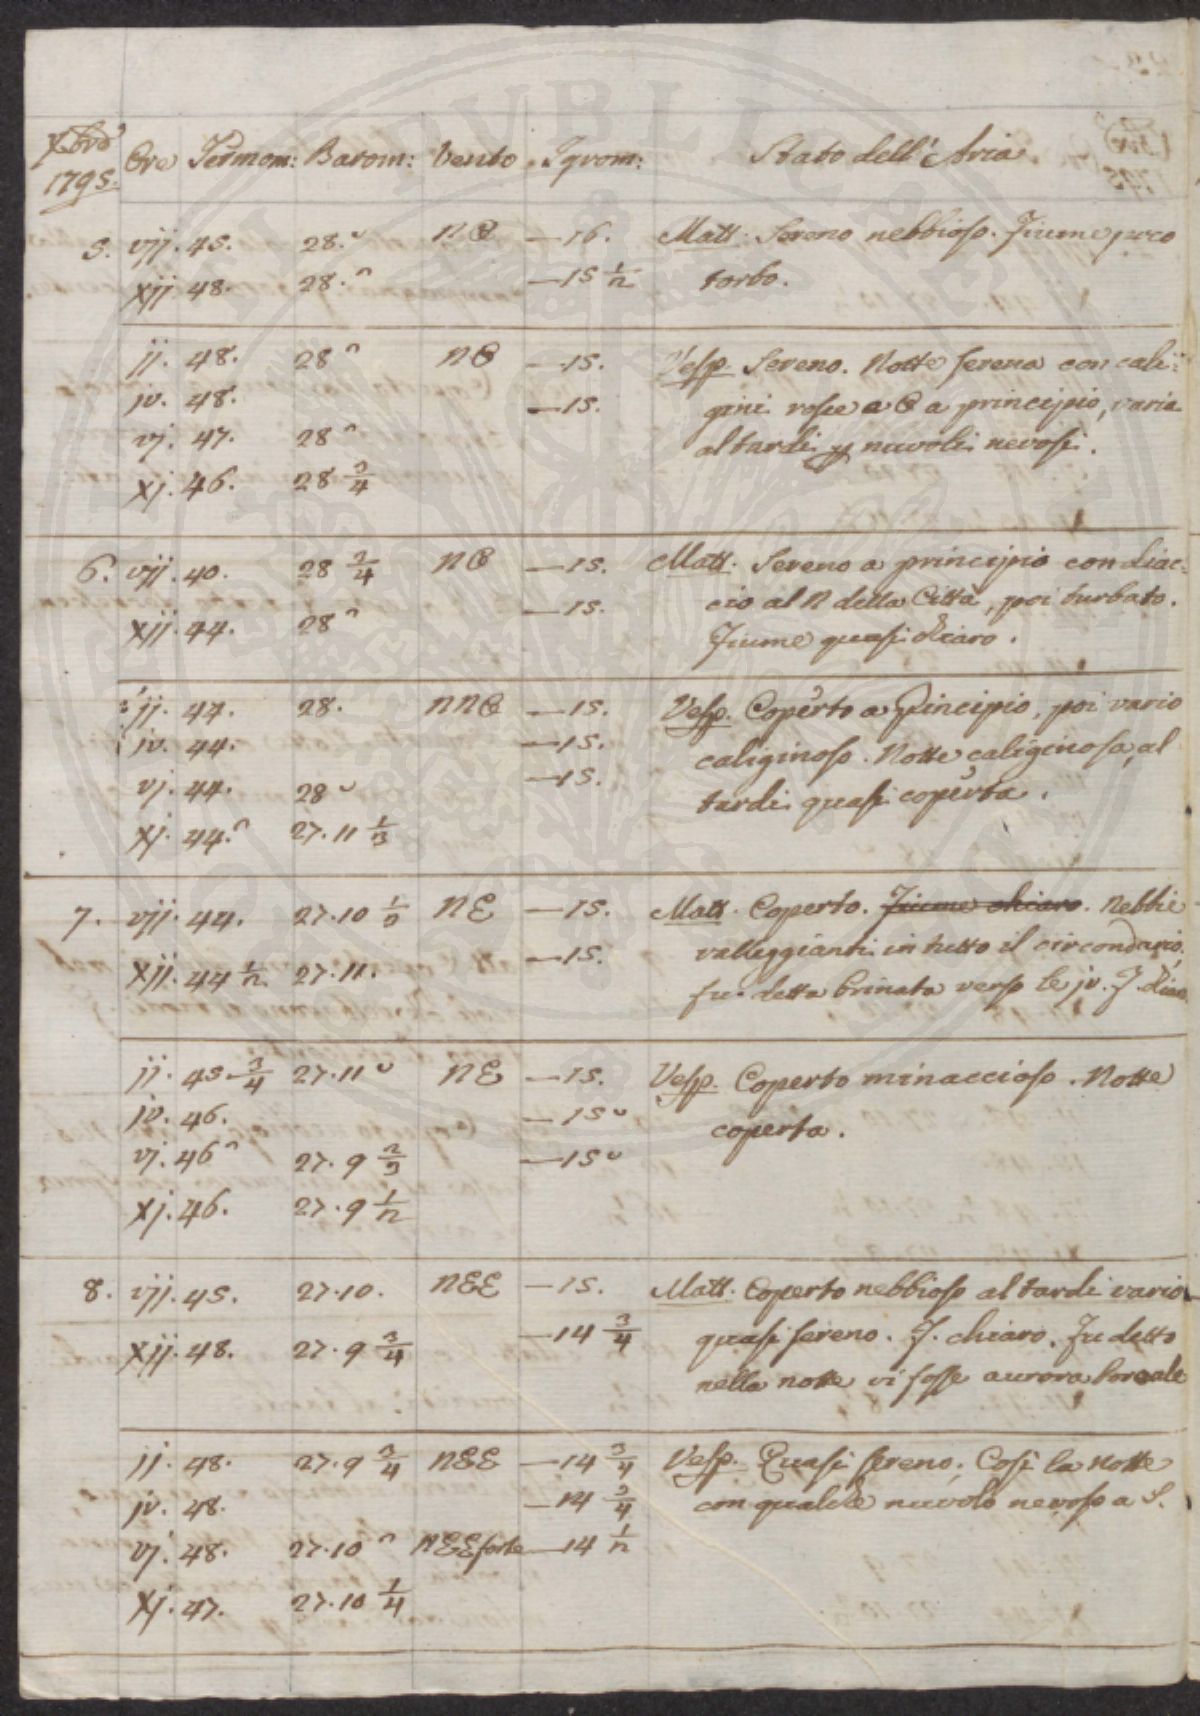 Xbre 1795. Ore Termom: Barom: Vento Igrom: Stato dell' Aria.
5. vij. 45. 28.ᵕ NO —16. Matt. Sereno nebbioso. Fiume poco
xij 48. 28.ᴖ —15 ½ torbo.
ij. 48. 28ᴖ NO —15. Vesp. Sereno. Notte serena con cali=
iv. 48. —15. gini rosse a O a principio, varia
vj. 47. 28ᴖ al tardi nuvoli nevosi.
xj. 46. 28 ¾
6. vij. 40. 28 ¾ NO —15. Matt. Sereno a principio con diac=
xij. 44. 28ᴖ —15. cio al N della Città, poi turbato.
Fiume quasi chiaro.
ij. 44. 28. NNO —15. Vesp. Coperto a Principio, poi vario
iv. 44. —15. caliginoso. Notte caliginosa, al
vj. 44. 28ᵕ —15. tardi quasi coperta.
xj. 44.ᴖ 27.11 ⅓
7. vij. 44. 27.10 ½ NE —15. Matt. Coperto. Fiume chiaro. Nebbie
xij. 44 ½ 27.11. —15. valleggianti in tutto il circondario.
fu detta brinata verso le iv. F.
ij. 45 ¾ 27.11ᵕ NE —15. Vesp. Coperto minaccioso. Notte
iv. 46. —15ᵕ coperta.
vj. 46ᴖ 27.9 ⅔ —15ᵕ
xj. 46. 27.9 ½
8. vij. 45. 27.10. NEE —15. Matt. Coperto nebbioso al tardi vario
xij. 48. 27.9 ¾ —14 ¾ quasi sereno. F. chiaro. Fu detto
nella notte vi fosse aurora boreale
ij. 48. 27.9 ¾ NEE —14 ¾ Vesp. Quasi sereno. Così la notte
iv. 48. —14 ¾ con qualche nuvolo nevoso a S.
vj. 48. 27.10ᴖ NEE forte —14 ½
xj. 47. 27.10 ¼